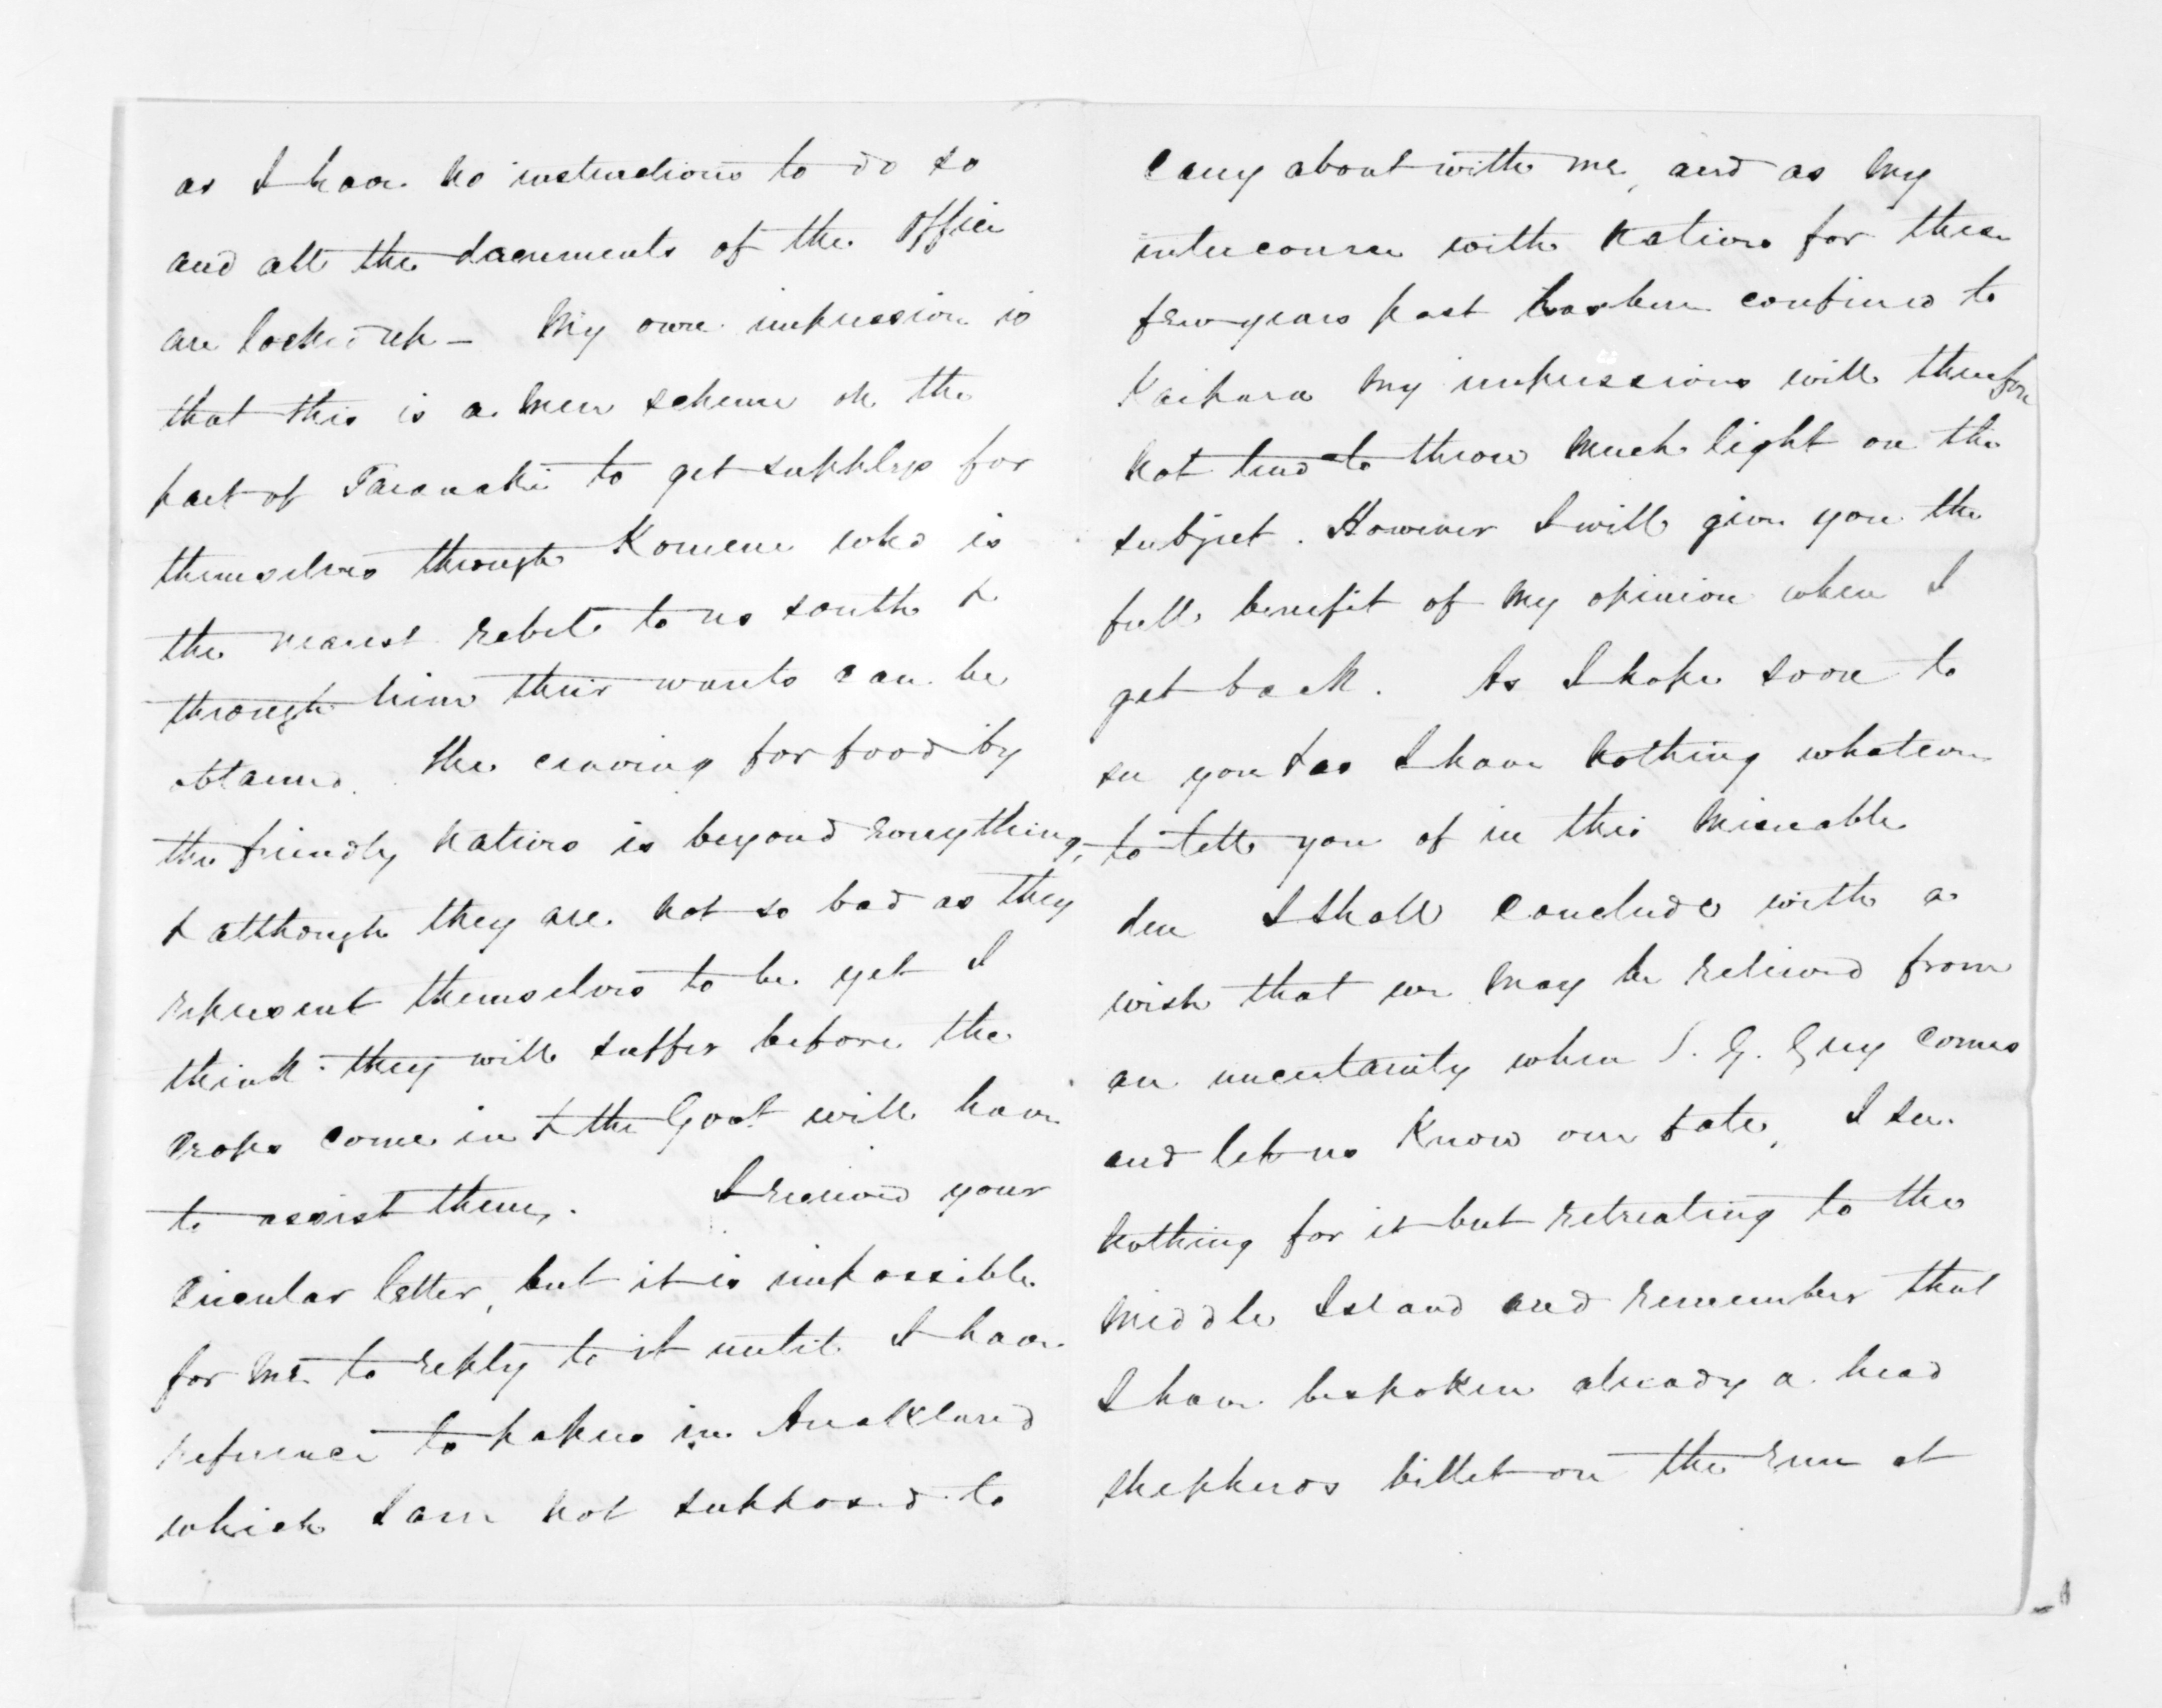 as I have no instructions to do so
and all the documents of the Office
are locked up — My own impression is
that this is a mere scheme on the
part of Taranaki to get supplys for
themselves through Komene who is
the nearest rebel to us south &
through him their wants can be
obtained. The craving for food by
the friendly natives is beyond everything,
& although they are not so bad as they
represent themselves to be yet I
think they will suffer before the
crops come in & the Govt will have
to assist them. I received your
circular letter, but it is impossible
for me to reply to it until I have
reference to papers in Auckland
which I am not supposed to
carry about with me, and as my
intercourse with natives for these
few years past has been confined to
Kaipara my impressions will therefore
not tend to throw much light on the
subject. However I will give you the
full benefit of my opinion when I
get back. As I hope soon to
see you & as I have nothing whatever
to tell you of in this miserable
den I shall conclude with a
wish that we may be relieved from
an uncertainty when S. G. Grey comes
and let us know our fate, I see
nothing for it but retreating to the
Middle Island and remember that
I have bespoken already a head
shepherds billet on the run at